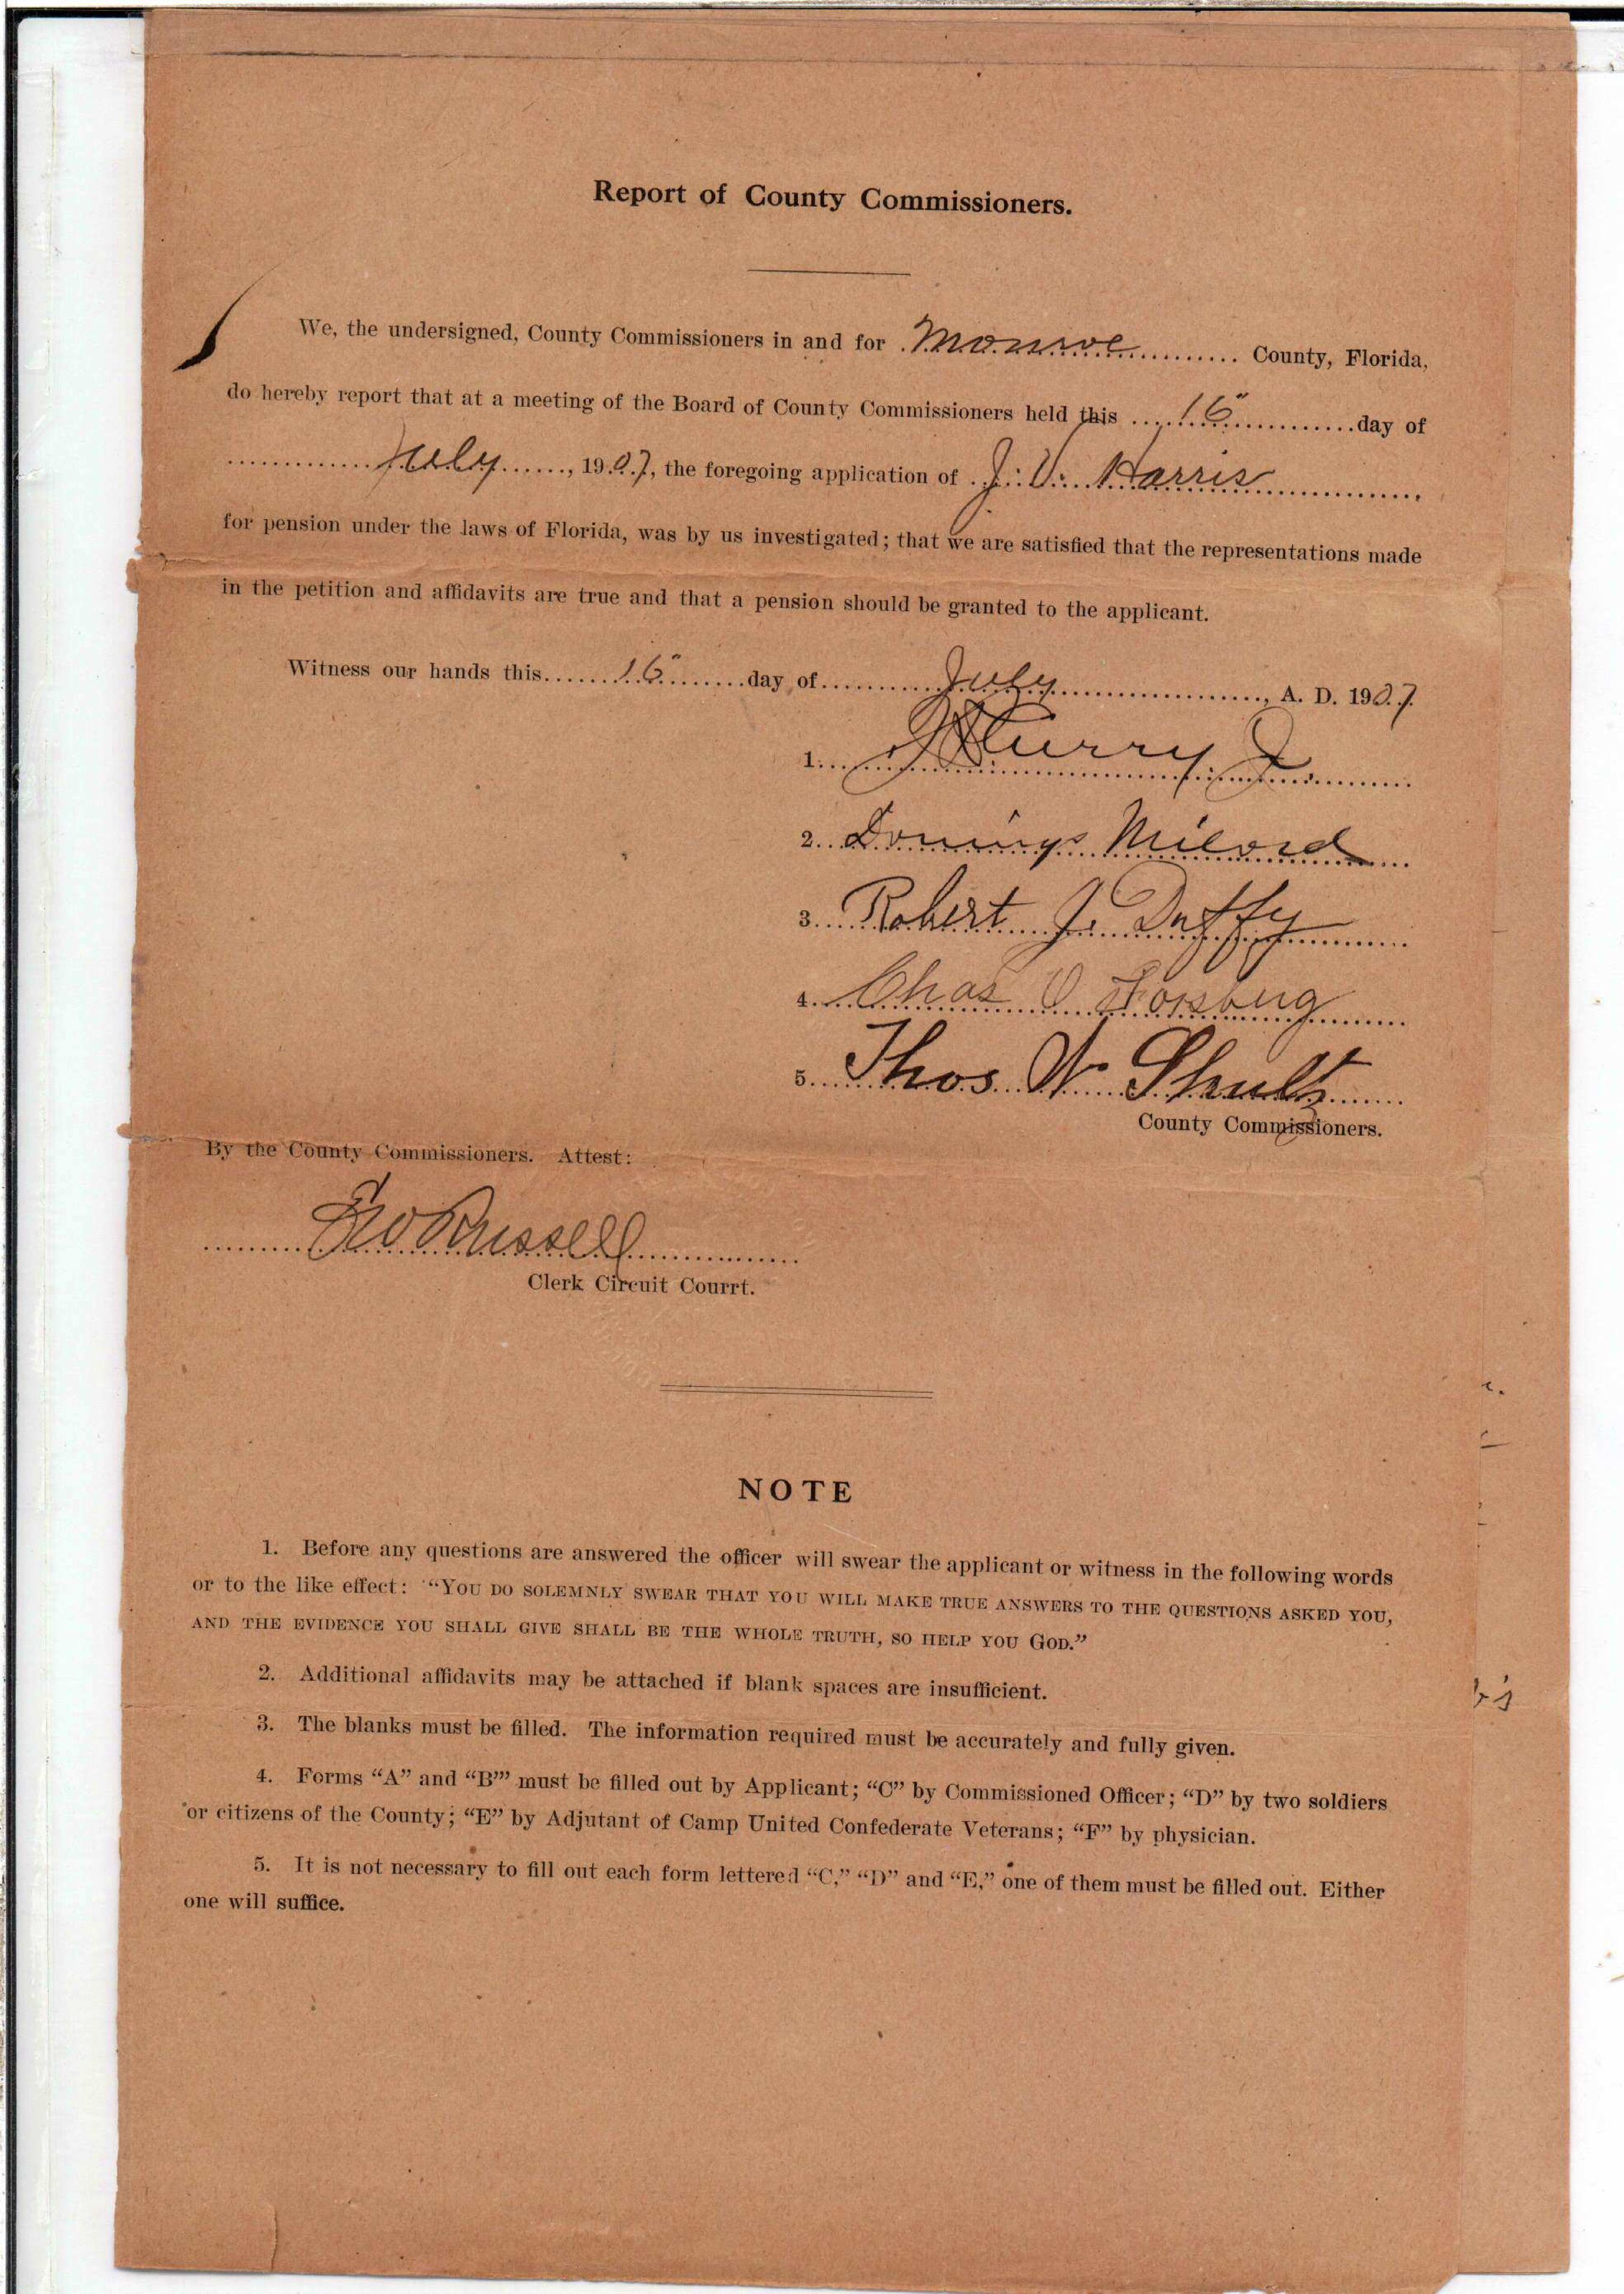 Report of County Commissioners.
We, the undersigned, County Commissioners in and for Monroe County, Florida,
do hereby report that at a meeting of the Board of County Commissioners held this 16" day of
July, 1907, the foregoing application of J. V. Harris
for pension under the laws of Florida, was by us investigated; that we are satisfied that the representations made
in the petition and affidavits are true and that a pension should be granted to the applicant.
Witness our hands this 16" day of July, A. D. 1907.
1. Curry
2. Milord
3. Robert J. Duffy
4. Chas
5. Thos W Shultz
County Commissioners.
By the County Commissioners. Attest:
Russell
Clerk Circuit Courrt.
NOTE
1. Before any questions are answered the officer will swear the applicant or witness in the following words
or to the like effect: "YOU DO SOLEMNLY SWEAR THAT YOU WILL MAKE TRUE ANSWERS TO THE QUESTIONS ASKED YOU,
AND THE EVIDENCE YOU SHALL GIVE SHALL BE THE WHOLE TRUTH, SO HELP YOU GOD."
2. Additional affidavits may be attached if blank spaces are insufficient.
3. The blanks must be filled. The information required must be accurately and fully given.
4. Forms "A" and "B'" must be filled out by Applicant; "C" by Commissioned Officer; "D" by two soldiers
or citizens of the County; "E" by Adjutant of Camp United Confederate Veterans; "F" by physician.
5. It is not necessary to fill out each form lettered "C," "D" and "E," one of them must be filled out. Either
one will suffice.